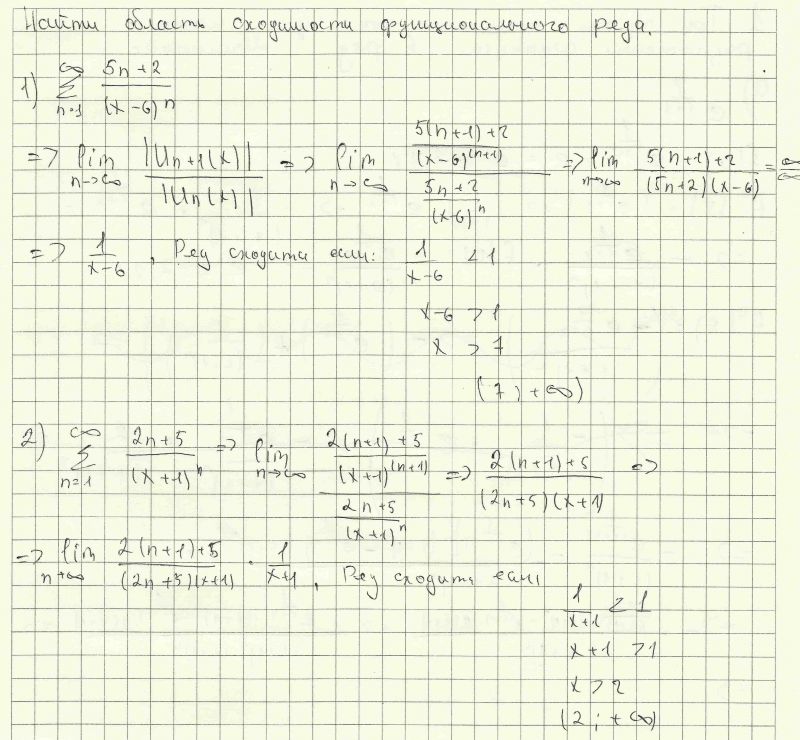 Найти область сходимости функционального реда.
1) ∞ Σ n=1 (5n+2)/(x-6)^n
=> lim n->∞ |Un+1(x)|/|Un(x)| => lim n->∞ ((5(n+1)+2)/(x-6)^(n+1))/((5n+2)/(x-6)^n) => lim n->∞ (5(n+1)+2)/((5n+2)(x-6)) = ∞/∞
=> 1/(x-6), Ред сходити если: 1/(x-6) < 1
x-6 > 1
x > 7
(7; +∞)
2) ∞ Σ n=1 (2n+5)/(x+1)^n => lim n->∞ ((2(n+1)+5)/(x+1)^(n+1))/((2n+5)/(x+1)^n) => (2(n+1)+5)/((2n+5)(x+1)) =>
=> lim n->∞ (2(n+1)+5)/((2n+5)(x+1)) · 1/(x+1), Ред сходити если
1/(x+1) < 1
x+1 > 1
x > 2
(2; +∞)